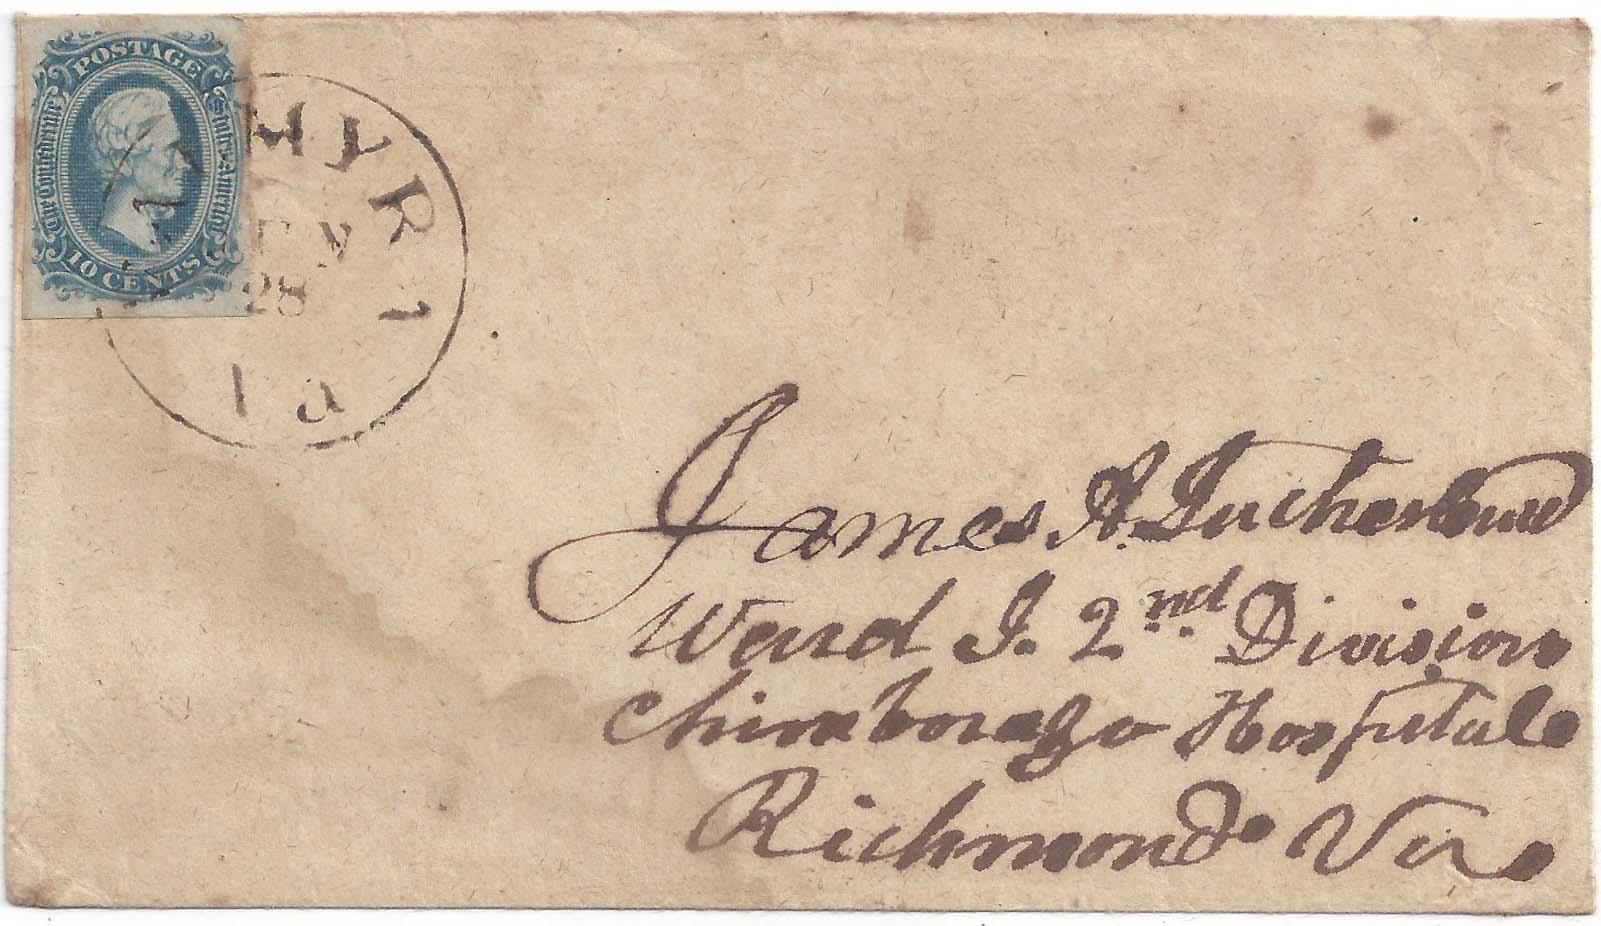 POSTAGE
The Confederate States of America
10 CENTS
MYRA
28
Va
James A. Tuckenbeure
Ward I. 2nd Division
Chimborazo Hospitale
Richmond Va